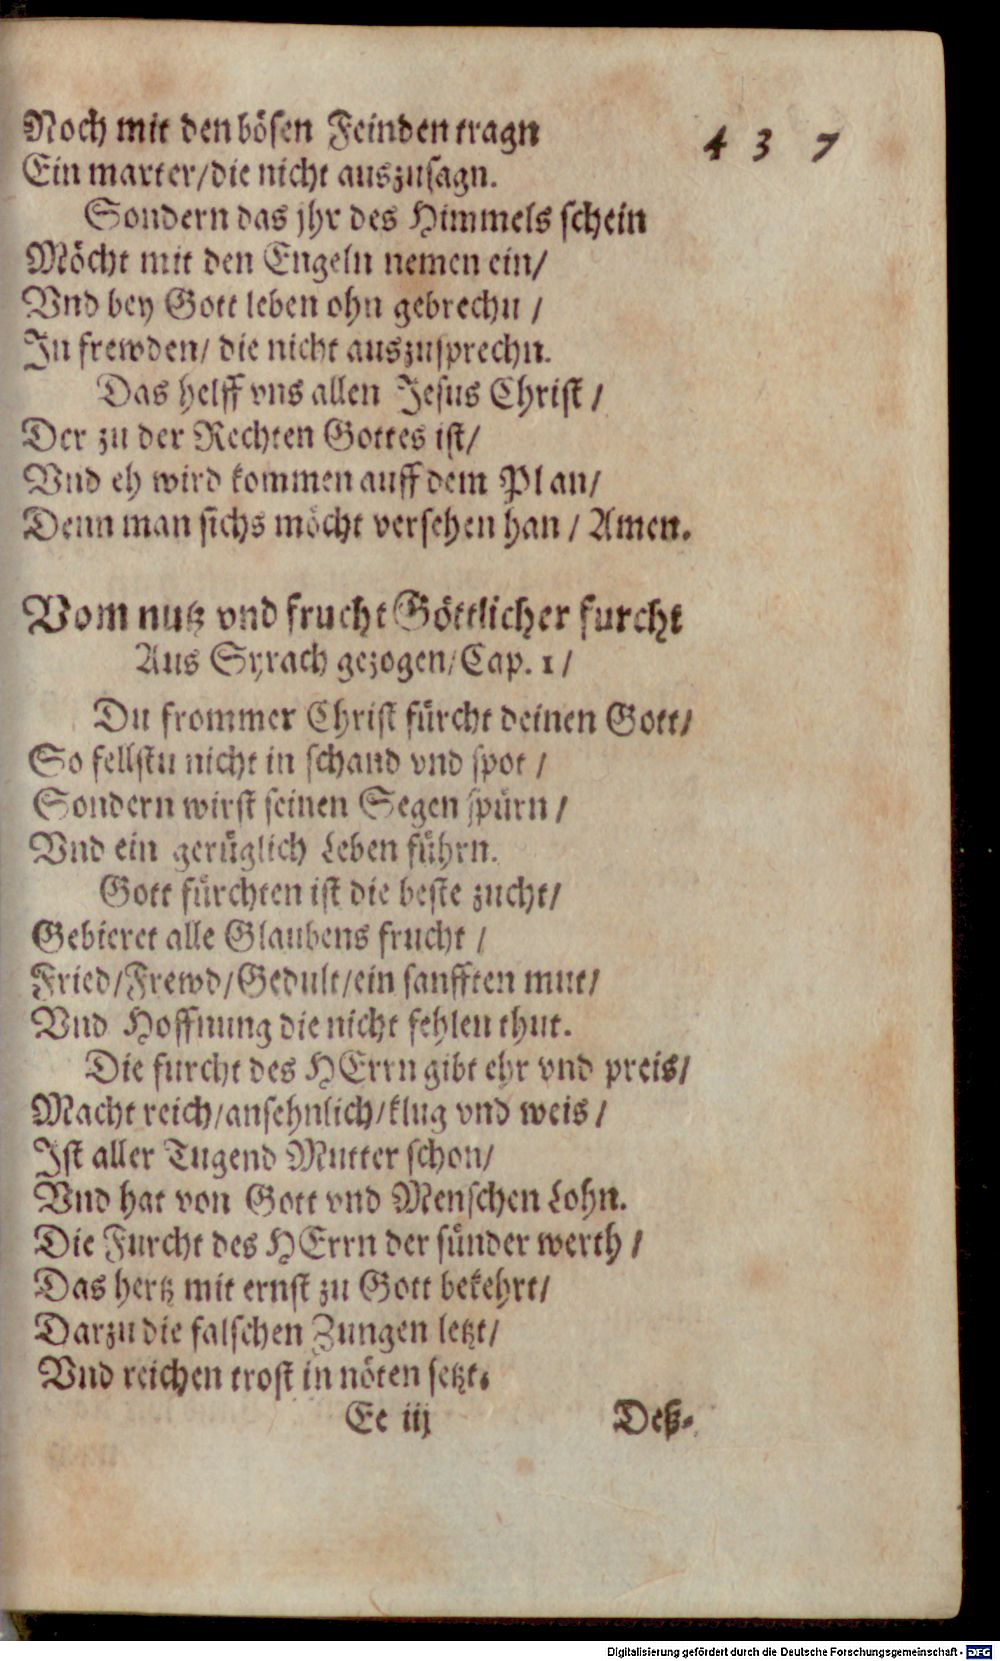 437
Noch mit den bösen Feinden tragn
Ein marter/die nicht auszusagn.
Sondern das jhr des Himmels schein
Möcht mit den Engeln nemen ein/
Vnd bey Gott leben ohn gebrechn /
In frewden/ die nicht auszusprechn.
Das helff vns allen Jesus Christ /
Der zu der Rechten Gottes ist/
Vnd eh wird kommen auff dem Plan/
Denn man sichs möcht versehen han / Amen.
Vom nutz vnd frucht Göttlicher furcht
Aus Syrach gezogen/Cap. 1/
Du frommer Christ fürcht deinen Gott/
So fellstu nicht in schand vnd spot /
Sondern wirst seinen Segen spürn /
Vnd ein gerüglich Leben führn.
Gott fürchten ist die beste zucht/
Gebieret alle Glaubens frucht /
Fried/Frewd/Gedult/ein sanfften mut/
Vnd Hoffnung die nicht fehlen thut.
Die furcht des HErrn gibt ehr vnd preis/
Macht reich/ansehnlich/klug vnd weis /
Ist aller Tugend Mutter schon/
Vnd hat von Gott vnd Menschen Lohn.
Die Furcht des HErrn der sünder werth /
Das hertz mit ernst zu Gott bekehrt/
Darzu die falschen Zungen letzt/
Vnd reichen trost in nöten setzt.
Ee iij Deß-
Digitalisierung gefördert durch die Deutsche Forschungsgemeinschaft - DFG